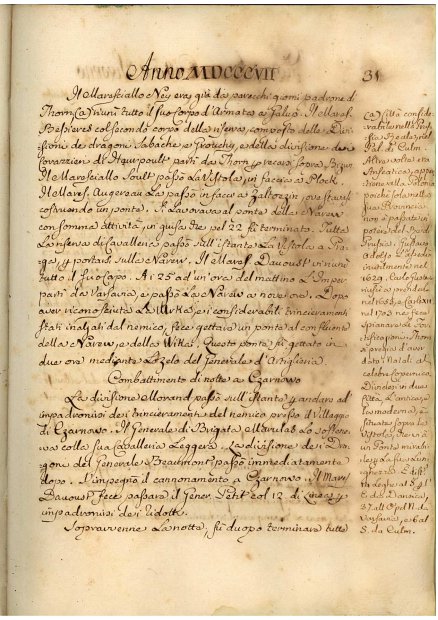 Anno MDCCCVII
31
Il Maresciallo Ney era già da parecchi giorni padrone di
Thorn (a) riunì tutto il suo corpo d'Armata a Galup. Il Maresc.
Bessieres col secondo corpo della riserva, composto delle Divi-
sioni de' dragoni Sahuc e Grouchy, e della divisione de'
Corazzieri d'Hautpoult partì da Thorn, e recossi sopra Bizun
Il Maresciallo Soult passò la Vistola in faccia a Plock
Il Maresc. Augereau la passò in faccia a Zakroczin, ove stavasi
costruendo un ponte. Si lavorava al ponte della Narew
con somma attività, in guisa che pel 22 fu terminato. Tutta
La riserva di Cavalleria passò sull'istante la Vistola a Pra-
ga, e portossi sulla Narew. Il Maresc. Davoust vi riunì
tutto il suo Corpo. Ai 25 ad un'ora del mattino l'Imper.
partì da Varsavia, e passò la Narew a nove ore. Dopo
aver riconosciuta la Wkra, e i considerabili trincieramenti
stati inalzati dal nemico, fece gettare un ponte al confluente
della Narew, e della Wkra. Questo ponte fu gettato in
due ore mediante lo zelo del Generale d'Artiglieria
Combattimento di notte a Czarnowo
La divisione Morand passò sull'istante per andare ad
impadronirsi dei trincieramenti del nemico presso il Villaggio
di Czarnowo. Il Generale di Brigata Marulaz lo soste-
neva colla sua Cavalleria Leggera. La divisione dei Dra-
goni del Generale Beaumont passò immediatamente
dopo. S'impegnò il cannonamento a Czarnowo. Il Maresc.
Davoust fece passare il Gener. Petit col 12 di Linea per
impadronirsi dei ridotti.
Sopravvenne la notte, fu d'uopo terminare tutte
(a) Città consid.
rabile nella Prus-
sia Reale nel
Pal. di Culm.
Altre volte età
Anseatica, appar-
tiene alla Polonia
poiché
non è passata in
potere del Re di
Prussia. Gustavo
Adolfo l'assediò
inutilmente nel
1629. Carlo Gustavo
nel 1655 e Carlo XII
nel 1703 ne fece
spianare le For-
tificazioni. Thorn
ha l'aver
dato i Natali al
celebre Copernico.
Dividesi in due
Città, l'antica, e
la moderna, è
situata sopra la
Vistola, dove v'è
un Ponte
per la sua lun-
ghezza. È distan-
ta leghe al S. p. l'
E. da Danzica,
37 all'O p. il N. da
Varsavia, e 6 al
S. da Culm.